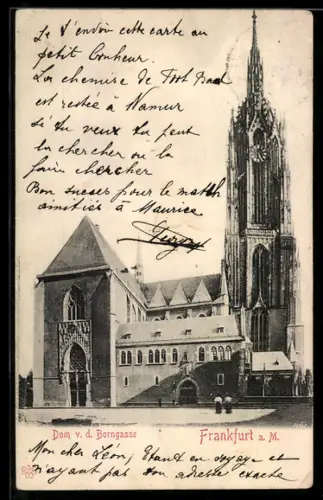 Je t'envoie cette carte au
petit bonheur.
La chemise de Foot Ball
est restée à Namur
si tu veux tu peut
la chercher ou la
faire chercher
Bon succes pour le match
amitiés à Maurice
Dom v. d. Borngasse
Frankfurt a. M.
Mon cher Léon, Etant en voyage et
n'ayant pas ton adresse exacte